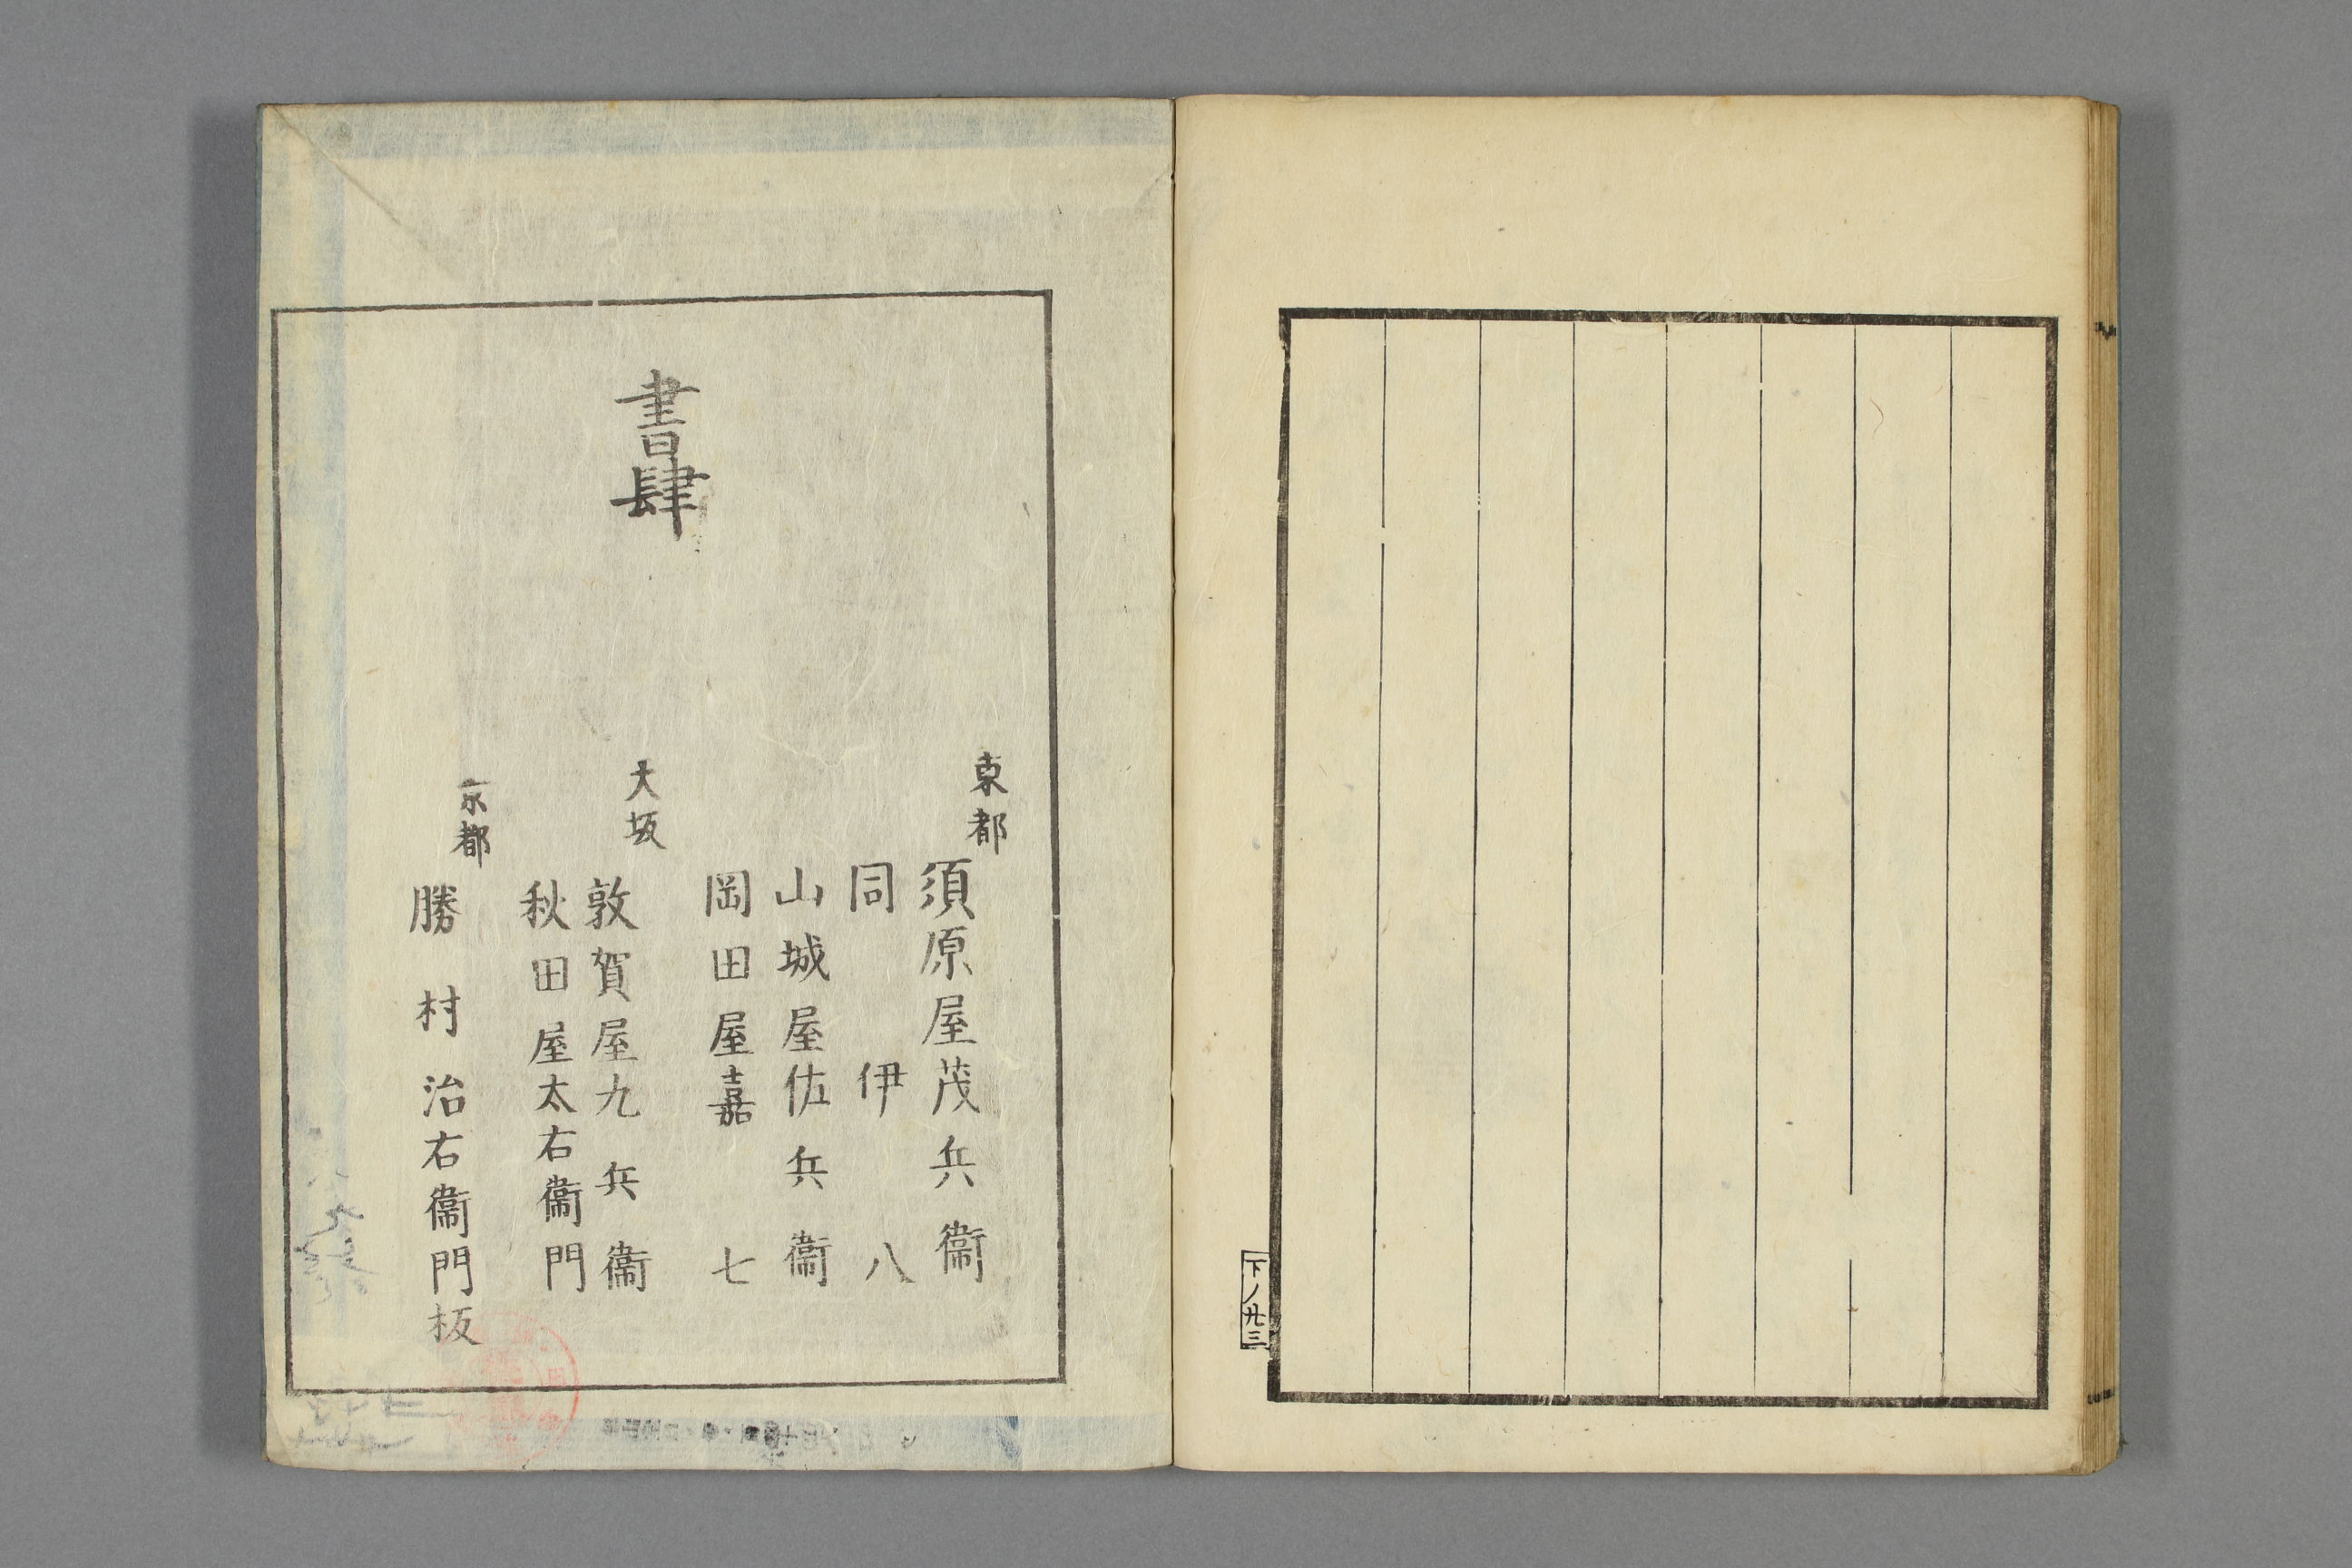 下ノ廿三
東都
須原屋茂兵衞
同伊八
山城屋佐兵衞
岡田屋嘉七
大坂
敦賀屋九兵衞
秋田屋太右衞門
京都
勝村治右衞門板
書肆